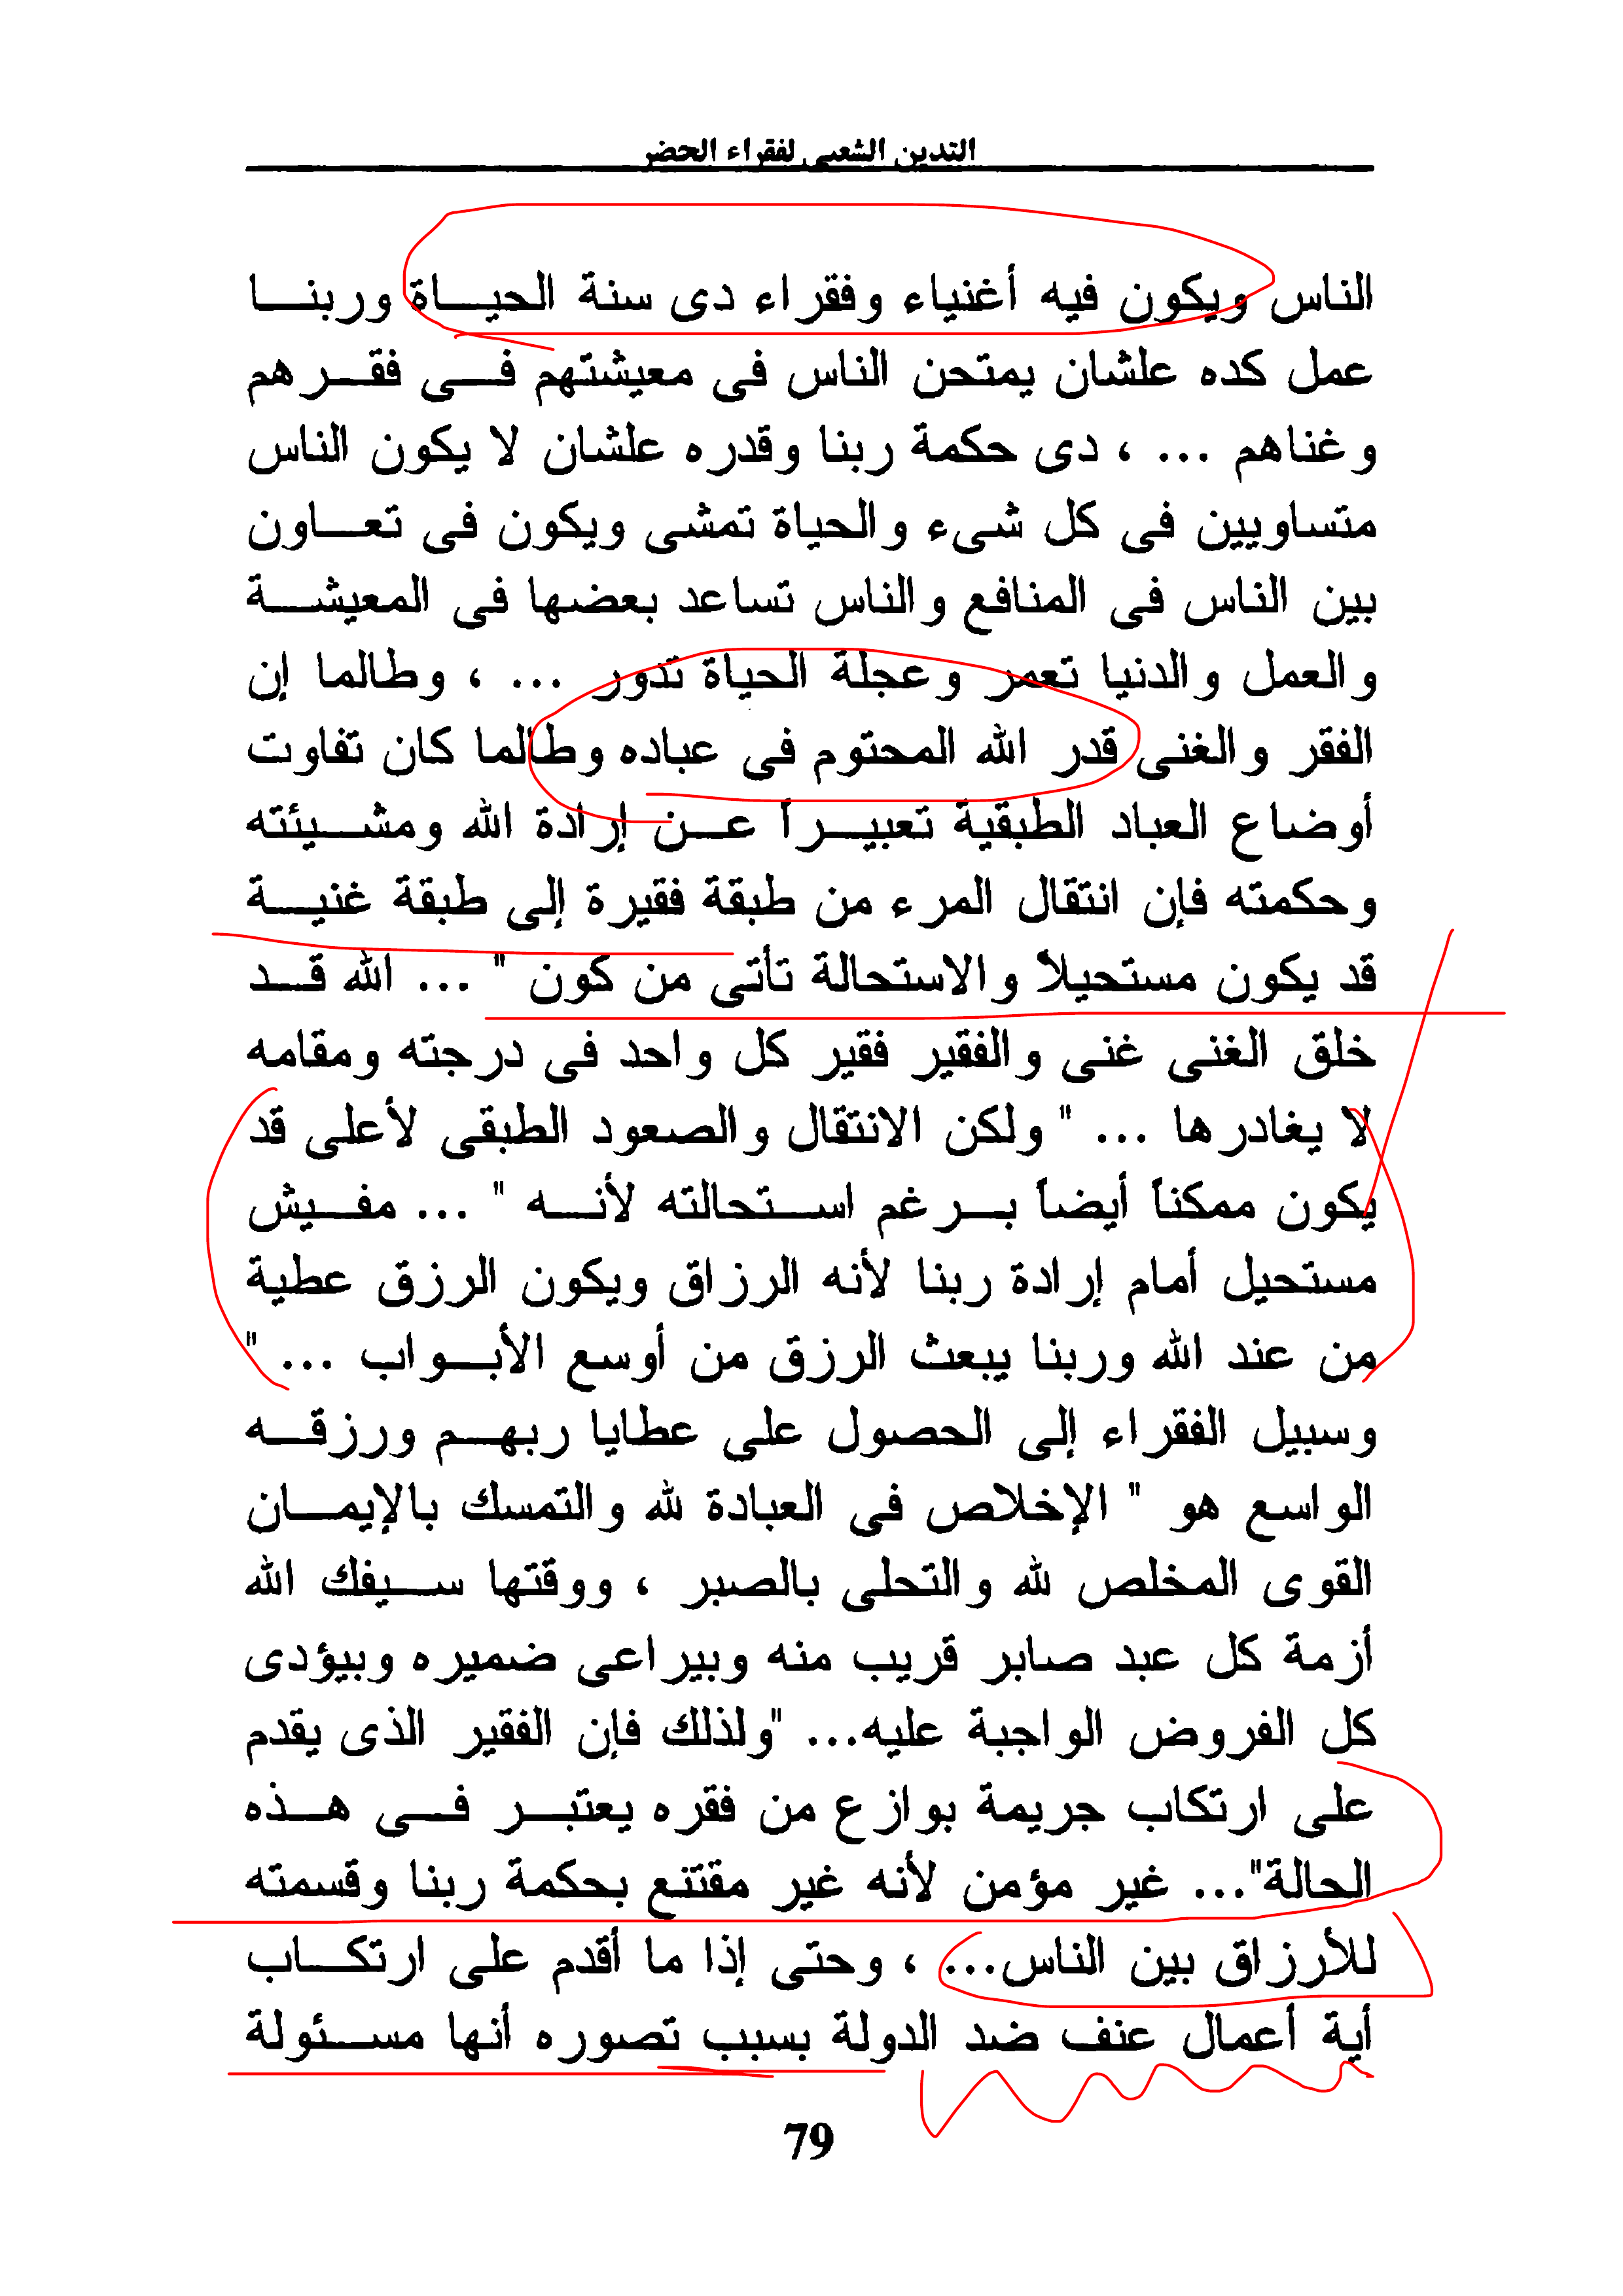 التدين الشعبى لفقراء الحضر
الناس ويكون فيه أغنياء وفقراء دى سنة الحيـــاة وربنـــا
عمل كده علشان يمتحن الناس فى معيشتهم فـــى فقـــرهم
وغناهم ... ، دى حكمة ربنا وقدره علشان لا يكون الناس
متساويين فى كل شىء والحياة تمشى ويكون فى تعـــاون
بين الناس فى المنافع والناس تساعد بعضها فى المعيشـــة
والعمل والدنيا تعمر وعجلة الحياة تدور ... ، وطالما إن
الفقر والغنى قدر الله المحتوم فى عباده وطالما كان تفاوت
أوضاع العباد الطبقية تعبيـــراً عـــن إرادة الله ومشـــيئته
وحكمته فإن انتقال المرء من طبقة فقيرة إلى طبقة غنيـــة
قد يكون مستحيلاً والاستحالة تأتى من كون " ... الله قـــد
خلق الغنى غنى والفقير فقير كل واحد فى درجته ومقامه
لا يغادرها ... " ولكن الانتقال والصعود الطبقى لأعلى قد
يكون ممكناً أيضاً بـــرغم اســـتحالته لأنـــه " ... مفـــيش
مستحيل أمام إرادة ربنا لأنه الرزاق ويكون الرزق عطية
من عند الله وربنا يبعث الرزق من أوسع الأبـــواب ... "
وسبيل الفقراء إلى الحصول على عطايا ربهـــم ورزقـــه
الواسع هو " الإخلاص فى العبادة لله والتمسك بالإيمـــان
القوى المخلص لله والتحلى بالصبر ، ووقتها ســـيفك الله
أزمة كل عبد صابر قريب منه وبيراعى ضميره وبيؤدى
كل الفروض الواجبة عليه... "ولذلك فإن الفقير الذى يقدم
على ارتكاب جريمة بوازع من فقره يعتبـــر فـــى هـــذه
الحالة"... غير مؤمن لأنه غير مقتنع بحكمة ربنا وقسمته
للأرزاق بين الناس... ، وحتى إذا ما أقدم على ارتكـــاب
أية أعمال عنف ضد الدولة بسبب تصوره أنها مســـئولة
79